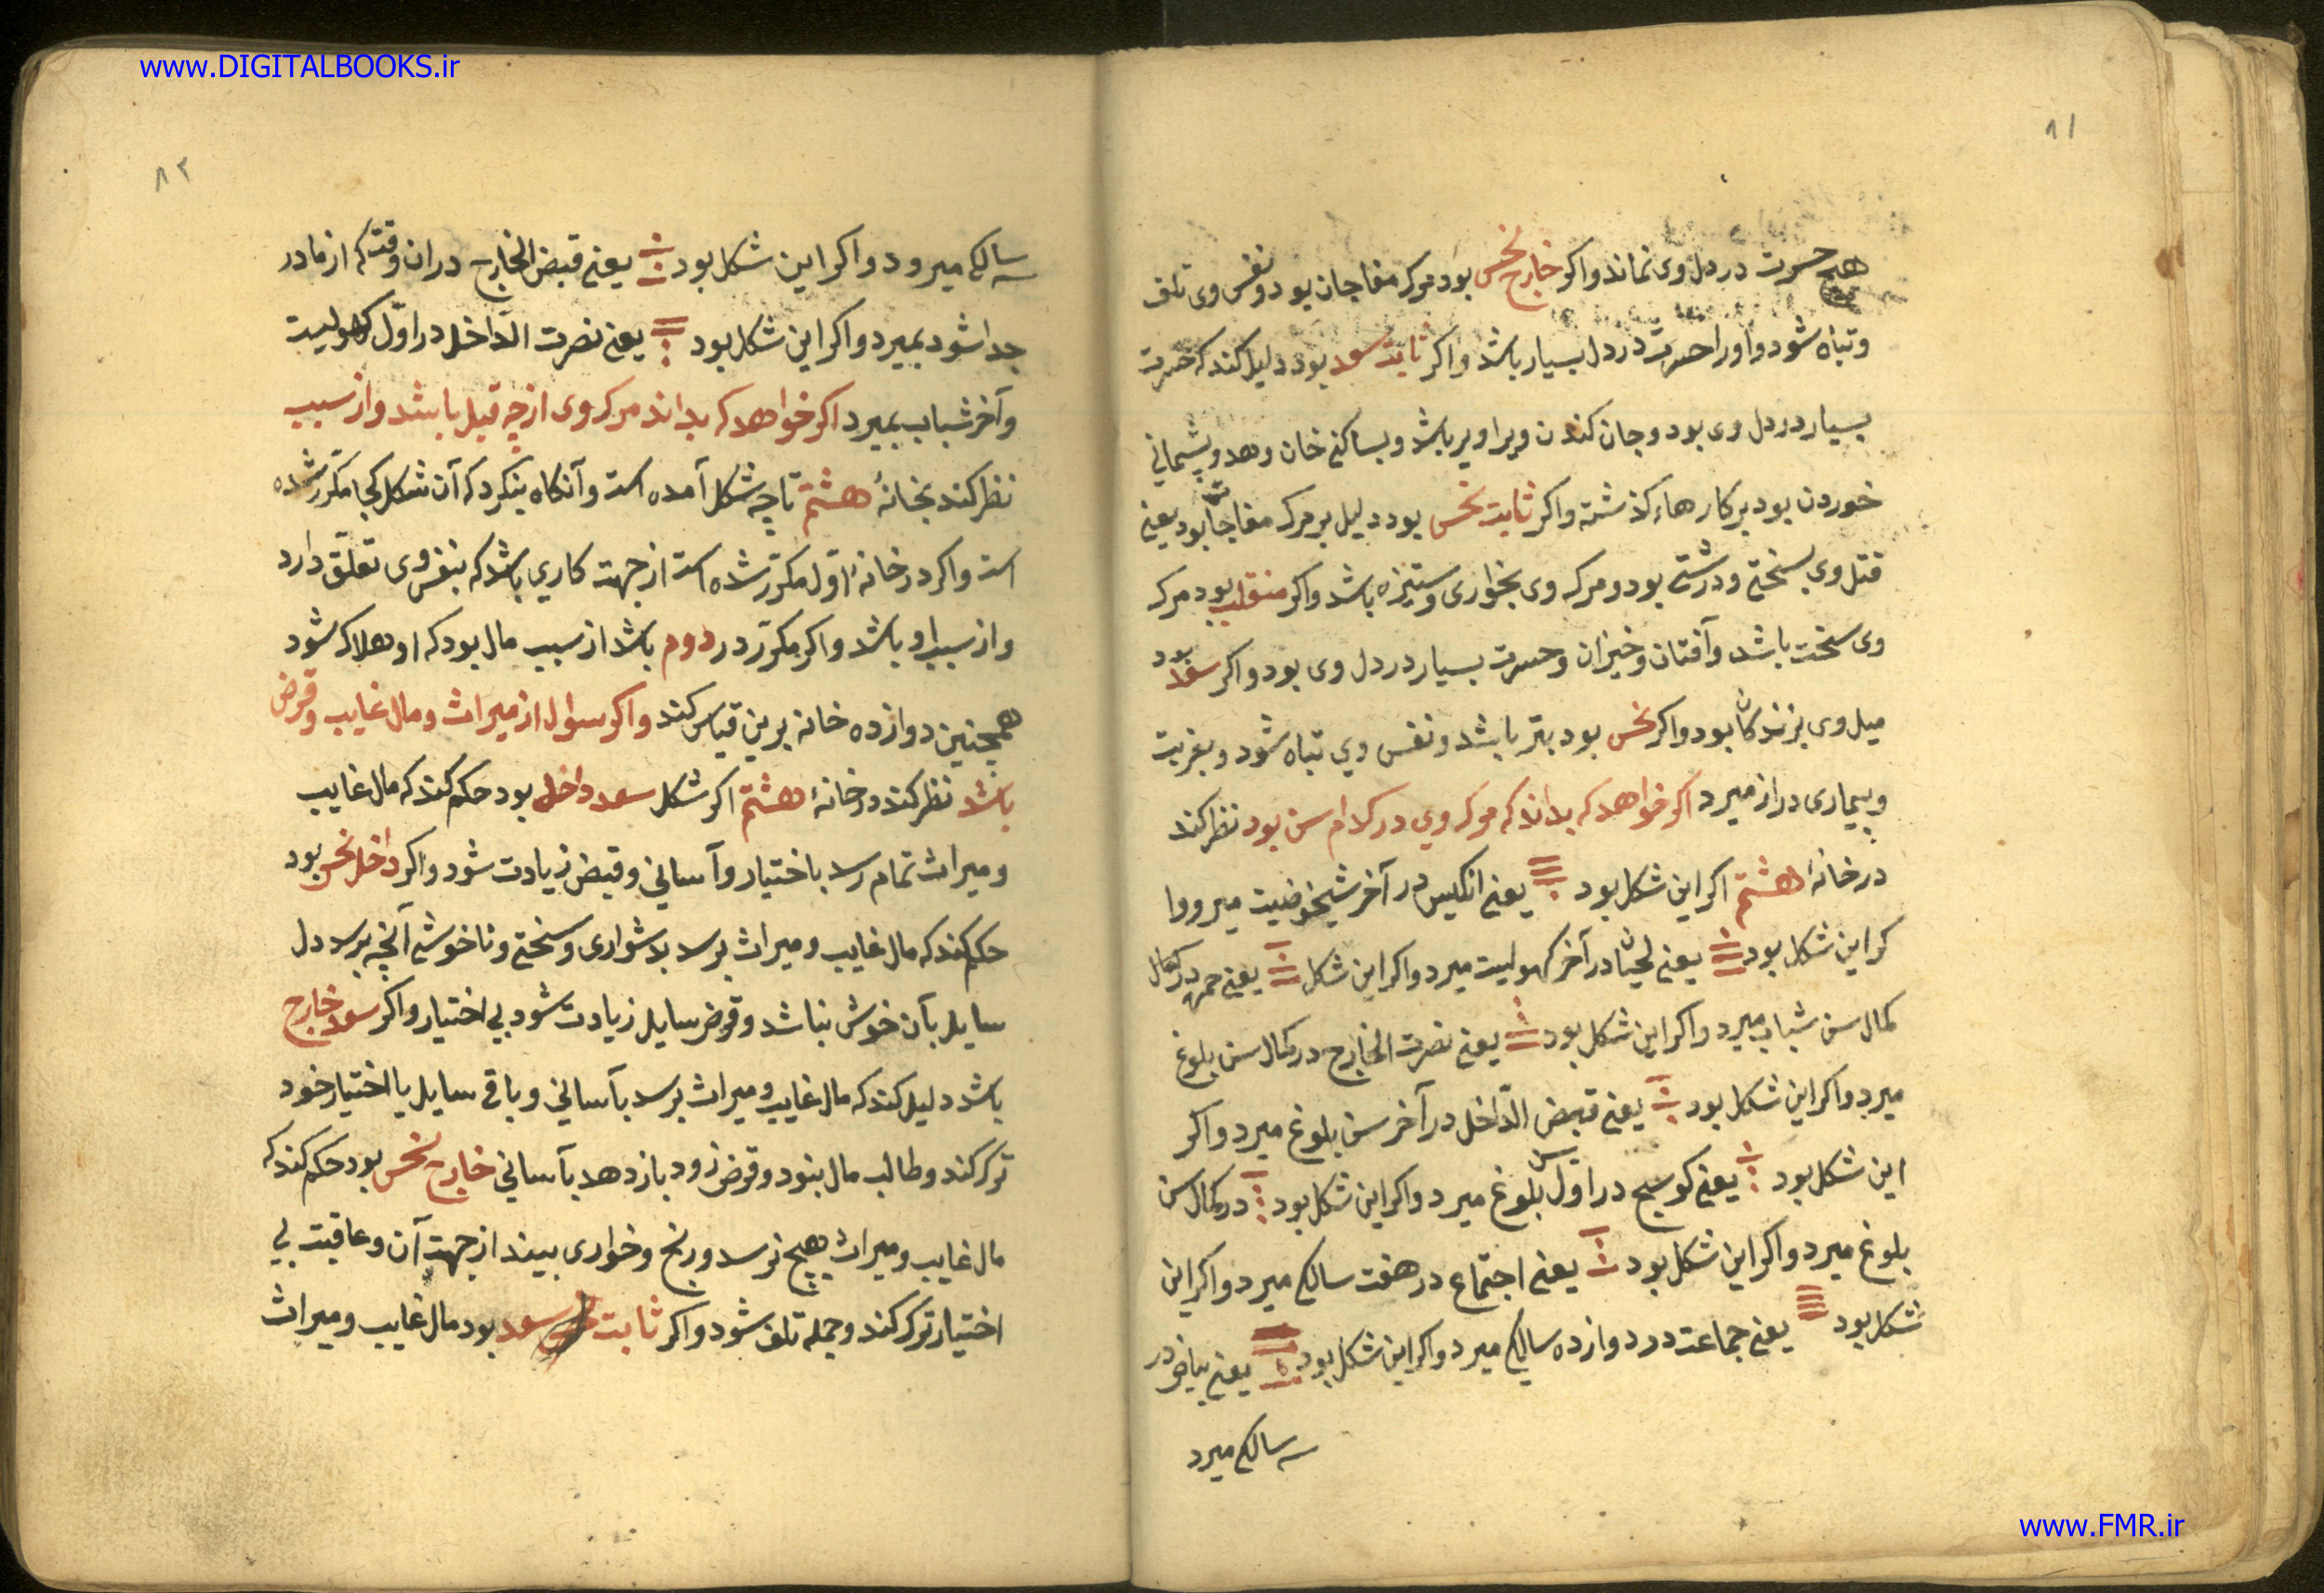 www.DIGITALBOOKS.ir
٨١
هیچ حسرت در دل وی نماند واکر خارج نحس بود مرک مفاجان بود و نفس وی تلف
وتباه شود واورا حسرت در دل بسیار باشد واکر ثابت سعد بود دلیل کند که حسرت
بسیار در دل وی بود وجان کندن ویرا دیر باشد وبساکنی خان وهد وپشیمانی
خوردن بود بر کارهاء کذشته واکر ثابت نحس بود دلیل بر مرک مفاجا بود یعنی
قتل وی بسختی ودرشتی بود ومرک وی بخواری وستیزه باشد واکر منقلب بود مرک
وی سخت باشد وآفتان وخیزان وحسرت بسیار در دل وی بود واکر سعد بود
میل وی بزندکان بود واکر نحس بود بتر باشد ونفس وی تباه شود وبغربت
وبیماری دراز میرد اکر خواهد که بداند که مرک وی در کدام سن بود نظر کند
در خانهٔ هشتم اکر این شکل بود یعنی انکیس در آخر شیخوخیت میرد وا
کر این شکل بود یعنی لحیان در آخر کهولیت میرد واکر این شکل یعنی حمره در کمال
کمال سن شباب میرد واکر این شکل بود یعنی نصرت الخارج در کمال سن بلوغ
میرد واکر این شکل بود یعنی قبض الدّاخل در آخر سن بلوغ میرد واکر
این شکل بود یعنی کوسج در اوّل سن بلوغ میرد واکر این شکل بود در کمال سن
بلوغ میرد واکر این شکل بود یعنی اجتماع در هفت سالکی میرد واکر این
شکل بود یعنی جماعت در دوازده سالکی میرد واکر این شکل بود یعنی بیاض در
سه سالکی میرد
٨٢
سه سالکی میرود واکر این شکل بود یعنی قبض الخارج در ان وقت که از مادر
جدا شود بمیرد واکر این شکل بود یعنی نصرت الدّاخل در اوّل کهولیت
وآخر شباب بمیرد اکر خواهد که بداند مرک وی از چه قبل باشد واز سبب
نظر کند بخانهٔ هشتم تا چه شکل آمده است وآنکاه بنکرد که آن شکل کجا مکرّر شده
است واکر در خانهٔ اوّل مکرّر شده است از جهت کاری باشد که بنفس وی تعلّق دارد
واز سبب او باشد واکر مکرّر در دوم باشد از سبب مال بود که او هلاک شود
همچنین دوازده خانه برین قیاس کند واکر سوال از میراث ومال غایب وقرض
باشد نظر کند در خانهٔ هشتم اکر شکل سعد داخل بود حکم کند که مال غایب
ومیراث تمام رسد باختیار وآسانی وقبض زیادت شود واکر داخل نحس بود
حکم کند که مال غایب ومیراث برسد بدشواری وسختی وناخوشی آنچه برسد دل
سایل بآن خوش نباشد وقرض سایل زیادت شود بی اختیار واکر سعد خارج
باشد دلیل کند که مال غایب ومیراث برسد بآسانی وباقی سایل با اختیار خود
ترک کند وطالب مال بنود وقرض زود باز دهد بآسانی خارج نحس بود حکم کند که
مال غایب ومیراث هیچ نرسد ورنج وخواری بیند از جهت آن وعاقبت بی
اختیار ترک کند وجمله تلف شود واکر ثابت سعد بود مال غایب ومیراث
www.FMR.ir